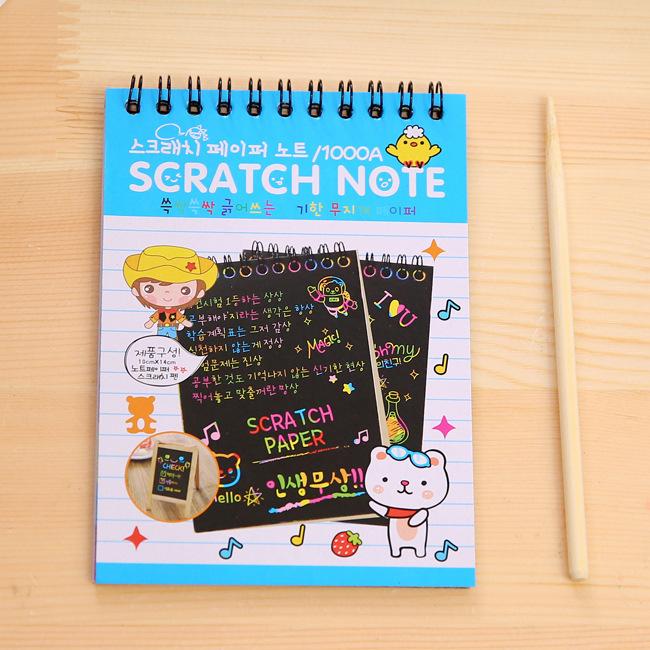 스크래치 페이퍼 노트 /1000A
SCRATCH NOTE
쓱싹쓱싹 긁어쓰는 기한 무지개 페이퍼
시험 1등하는 상상
공부해야지라는 생각은 항상
학습계획표는 그저 감상
실천하지 않는게 정상
시험문제는 진상
공부한것도 기억나지 않는 신기한 현상
찍어놓고 맞출꺼란 망상
Magic!
I U
Oh my
제품구성!
10cmX14cm
노트페이퍼
스크래치 펜
SCRATCH
PAPER
CHECK!
Hello
인생무상!!